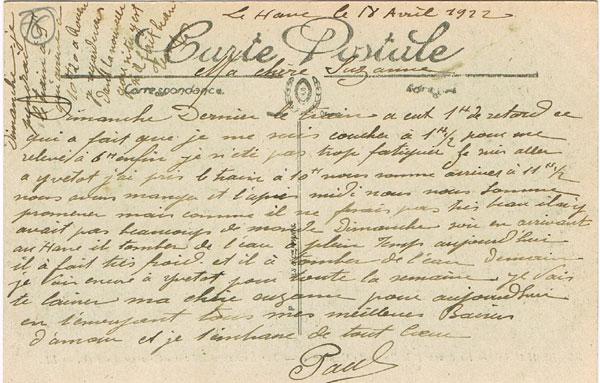 Le Havre le 18 Avril 1922
Carte Postale
Ma chère Suzanne
Correspondance
Adresse
Dimanche Dernier le train a eut 1h de retard ce
qui a fait que je me suis coucher à 1h 1/2 pour me
relevé à 6h enfin je n'été pas trop fatiguer je suis aller
a yvetot j'ai pris le train à 10h nous somme arriver à 11h 1/2
nous avons manger et l'après midi nous nous somme
promener mais comme il ne fesais pas très beau il n'y
avait pas beaucoups de monde Dimanche soir en arrivant
au Havre il tomber de l'eau plein temps aujourd'hui
il à fait très froid et il à tomber de l'eau demain
je suis encore à yvetot pour toute la semaine je vais
te laisser ma chère suzanne pour aujourd'hui
en t'envoyant tous mes meilleurs Baisers
d'amour et je t'embrasse de tout Coeur
Paul
Dimanche je
le train
dans la nouvelle